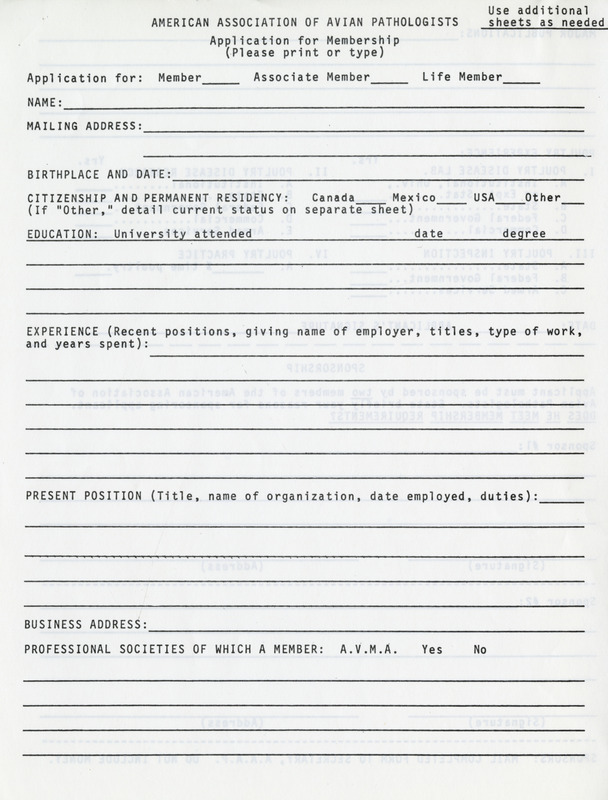 Use additional
AMERICAN ASSOCIATION OF AVIAN PATHOLOGISTS sheets as needed
Application for Membership
(Please print or type)
Application for: Member_____ Associate Member_____ Life Member_____
NAME:
MAILING ADDRESS:
BIRTHPLACE AND DATE:
CITIZENSHIP AND PERMANENT RESIDENCY: Canada____ Mexico____ USA____ Other____
(If "Other," detail current status on separate sheet)
EDUCATION: University attended date degree
EXPERIENCE (Recent positions, giving name of employer, titles, type of work,
and years spent):
PRESENT POSITION (Title, name of organization, date employed, duties):
BUSINESS ADDRESS:
PROFESSIONAL SOCIETIES OF WHICH A MEMBER: A.V.M.A. Yes No